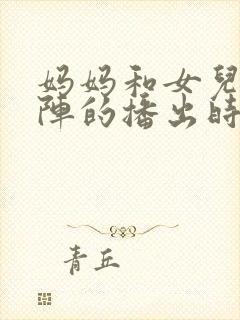 妈妈和女兒
陣的播出時
青丘